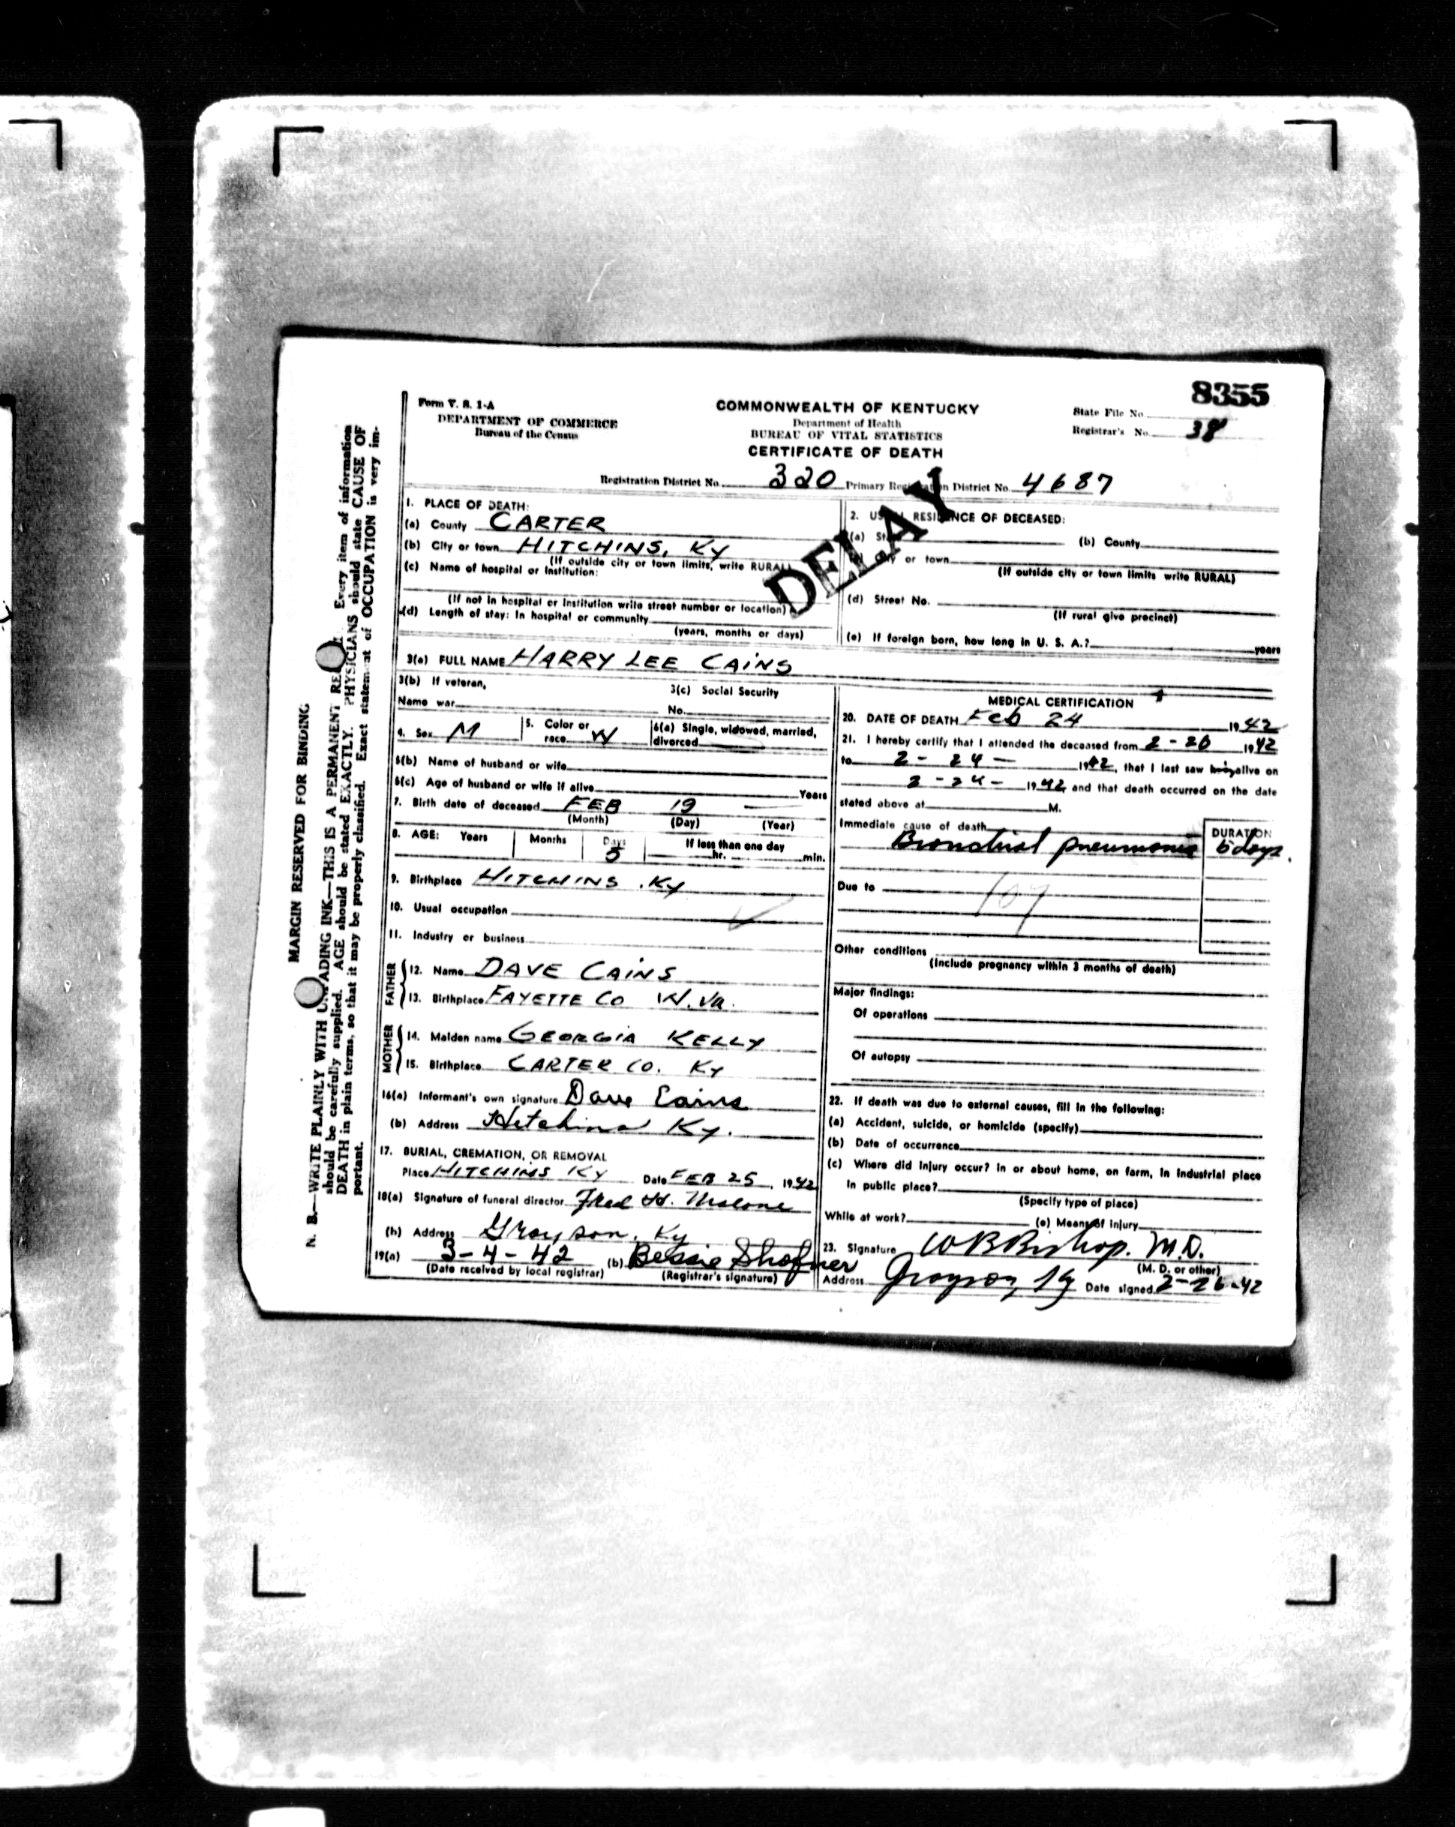 8355
Form V. S. 1-A
DEPARTMENT OF COMMERCE
Bureau of the Census
COMMONWEALTH OF KENTUCKY
Department of Health
BUREAU OF VITAL STATISTICS
CERTIFICATE OF DEATH
State File No.
Registrar's No. 38
Registration District No. 320 Primary Registration District No. 4687
DELAY
1. PLACE OF DEATH:
(a) County CARTER
(b) City or town HITCHINS, KY
(If outside city or town limits, write RURAL)
(c) Name of hospital or Institution:
(If not in hospital or institution write street number or location)
(d) Length of stay: In hospital or community
(years, months or days)
2. USUAL RESIDENCE OF DECEASED:
(a) State (b) County
(b) City or town
(If outside city or town limits write RURAL)
(d) Street No.
(If rural give precinct)
(e) If foreign born, how long in U. S. A.? years
3(a) FULL NAME HARRY LEE CAINS
3(b) If veteran,
Name war
3(c) Social Security
No.
4. Sex M 5. Color or race W 6(a) Single, widowed, married, divorced
6(b) Name of husband or wife
6(c) Age of husband or wife if alive Years
7. Birth date of deceased FEB 19
(Month) (Day) (Year)
8. AGE: Years Months Days If less than one day
5 hr. min.
9. Birthplace HITCHINS, KY
10. Usual occupation
11. Industry or business
FATHER
12. Name DAVE CAINS
13. Birthplace FAYETTE CO W. VA.
MOTHER
14. Maiden name GEORGIA KELLY
15. Birthplace CARTER CO. KY
16(a) Informant's own signature Dave Cains
(b) Address Hitchins Ky.
17. BURIAL, CREMATION, OR REMOVAL
Place HITCHINS KY Date FEB 25, 1942
18(a) Signature of funeral director Fred H. Malone
(b) Address Grayson, Ky
19(a) 3-4-42 (b) Bessie Shofner
(Date received by local registrar) (Registrar's signature)
MEDICAL CERTIFICATION
20. DATE OF DEATH Feb 24 1942
21. I hereby certify that I attended the deceased from 2-20 1942
to 2-24- 1942, that I last saw him alive on
2-24- 1942 and that death occurred on the date
stated above at M.
Immediate cause of death DURATION
Bronchial pneumonia 5 days.
Due to 107
Other conditions
(Include pregnancy within 3 months of death)
Major findings:
Of operations
Of autopsy
22. If death was due to external causes, fill in the following:
(a) Accident, suicide, or homicide (specify)
(b) Date of occurrence
(c) Where did injury occur? in or about home, on farm, in industrial place
in public place?
(Specify type of place)
While at work? (e) Means of Injury
23. Signature W B Bishop. M.D.
(M. D. or other)
Address Grayson, Ky Date signed 2-26-42
MARGIN RESERVED FOR BINDING
N. B.—WRITE PLAINLY WITH UNFADING INK—THIS IS A PERMANENT RE Every item of information
should be carefully supplied. AGE should be stated EXACTLY. PHYSICIANS should state CAUSE OF
DEATH in plain terms, so that it may be properly classified. Exact statement of OCCUPATION is very im-
portant.